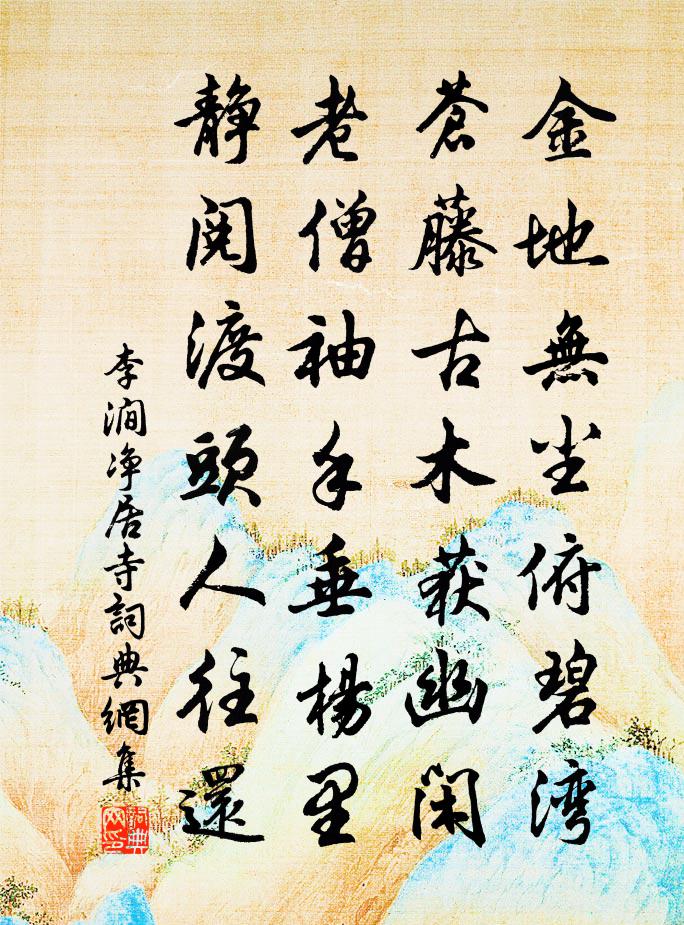 金地無尘俯碧湾
蒼藤古木获幽閑
老僧袖手垂楊里
静閱渡頭人往還
李澗净居寺詞典網集
詞典网印